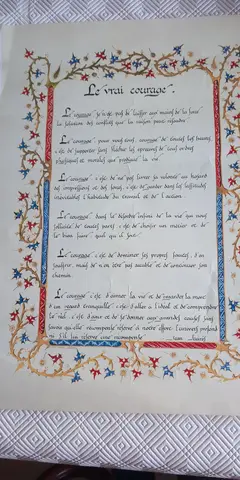 Le vrai courage.
Le courage, ce n'est pas de laisser aux mains de la force
la solution des conflits que la raison peut résoudre.
Le courage, pour nous tous, courage de toutes les heures,
c'est de supporter sans fléchir les épreuves de tout ordre,
physiques et morales que prodigue la vie.
Le courage, c'est de ne pas livrer sa volonté au hasard
des impressions et des forces, c'est de garder dans les lassitudes
inévitables l'habitude du travail et de l'action.
Le courage dans le désordre infini de la vie qui nous
sollicite de toutes parts, c'est de choisir un métier et de
le bien faire, quel qu'il soit.
Le courage, c'est de dominer ses propres fautes, d'en
souffrir, mais de n'en être pas accablé et de continuer son
chemin.
Le courage, c'est d'aimer la vie et de regarder la mort
d'un regard tranquille; c'est d'aller à l'idéal et de comprendre
le réel, c'est d'agir et de se donner aux grandes causes sans
savoir quelle récompense réserve à notre effort l'univers profond
ni s'il lui réserve une récompense. Jean Jaurès